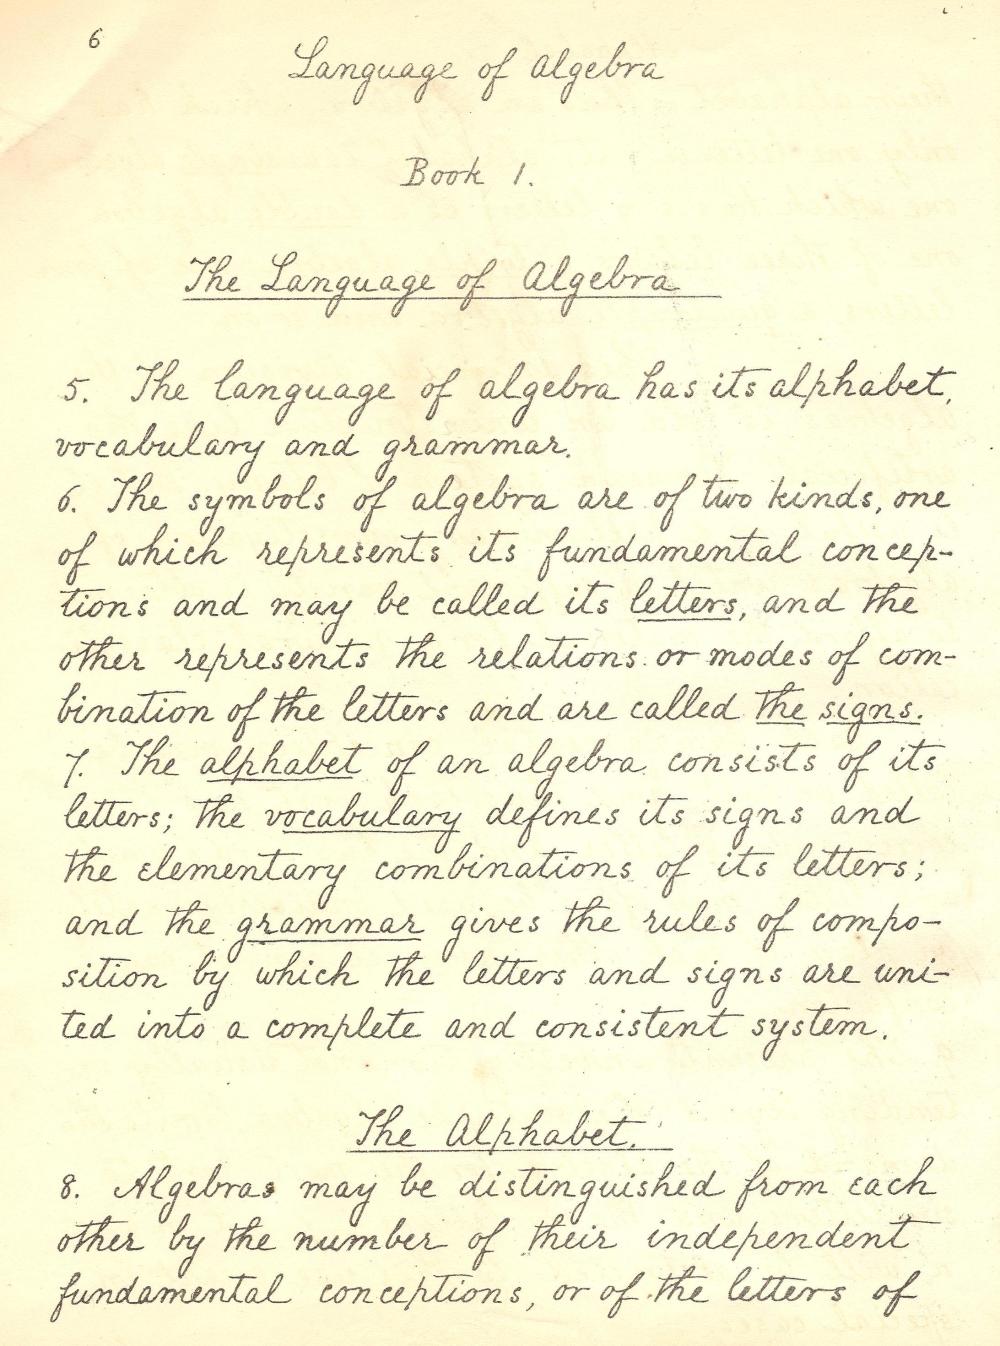 6
Language of Algebra
Book 1.
The Language of Algebra
5. The language of algebra has its alphabet,
vocabulary and grammar.
6. The symbols of algebra are of two kinds, one
of which represents its fundamental concep-
tions and may be called its letters, and the
other represents the relations or modes of com-
bination of the letters and are called the signs.
7. The alphabet of an algebra consists of its
letters; the vocabulary defines its signs and
the elementary combinations of its letters;
and the grammar gives the rules of compo-
sition by which the letters and signs are uni-
ted into a complete and consistent system.
The Alphabet.
8. Algebras may be distinguished from each
other by the number of their independent
fundamental conceptions, or of the letters of